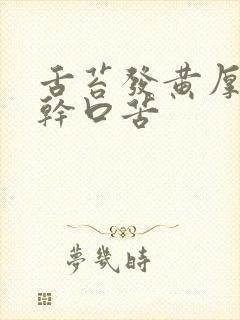 舌苔發黃厚
幹口苦
夢幾時